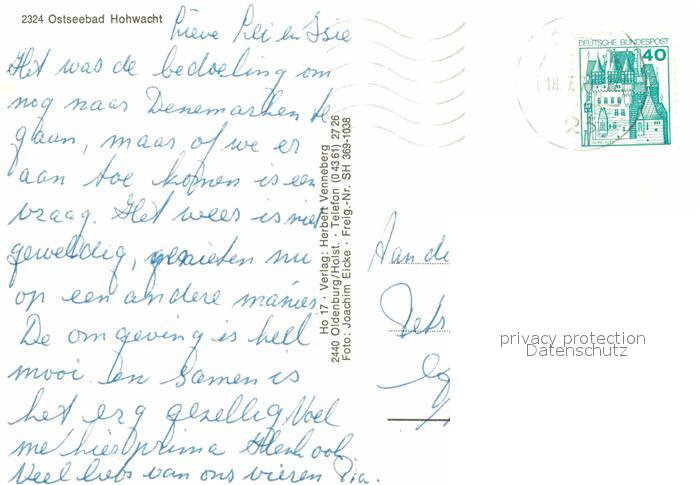 2324 Ostseebad Hohwacht
Lieve Lei en Isie
Het was de bedoeling om
nog naar Denemarken te
gaan, maar of we er
aan toe komen is een
vraag. Het weer is niet
geweldig, genieten nu
op een andere manier
De omgeving is heel
mooi en samen is
het erg gezellig Voel
me hier prima Henk ook
Veel liefs van ons vieren Pia.
Ho 17 · Verlag: Herbert Venneberg
2440 Oldenburg/Holst. · Telefon (0 43 61) 27 26
Foto: Joachim Eicke · Freig.-Nr. SH 369-1038
DEUTSCHE BUNDESPOST
40
18.7.
Aan de
privacy protection
Datenschutz